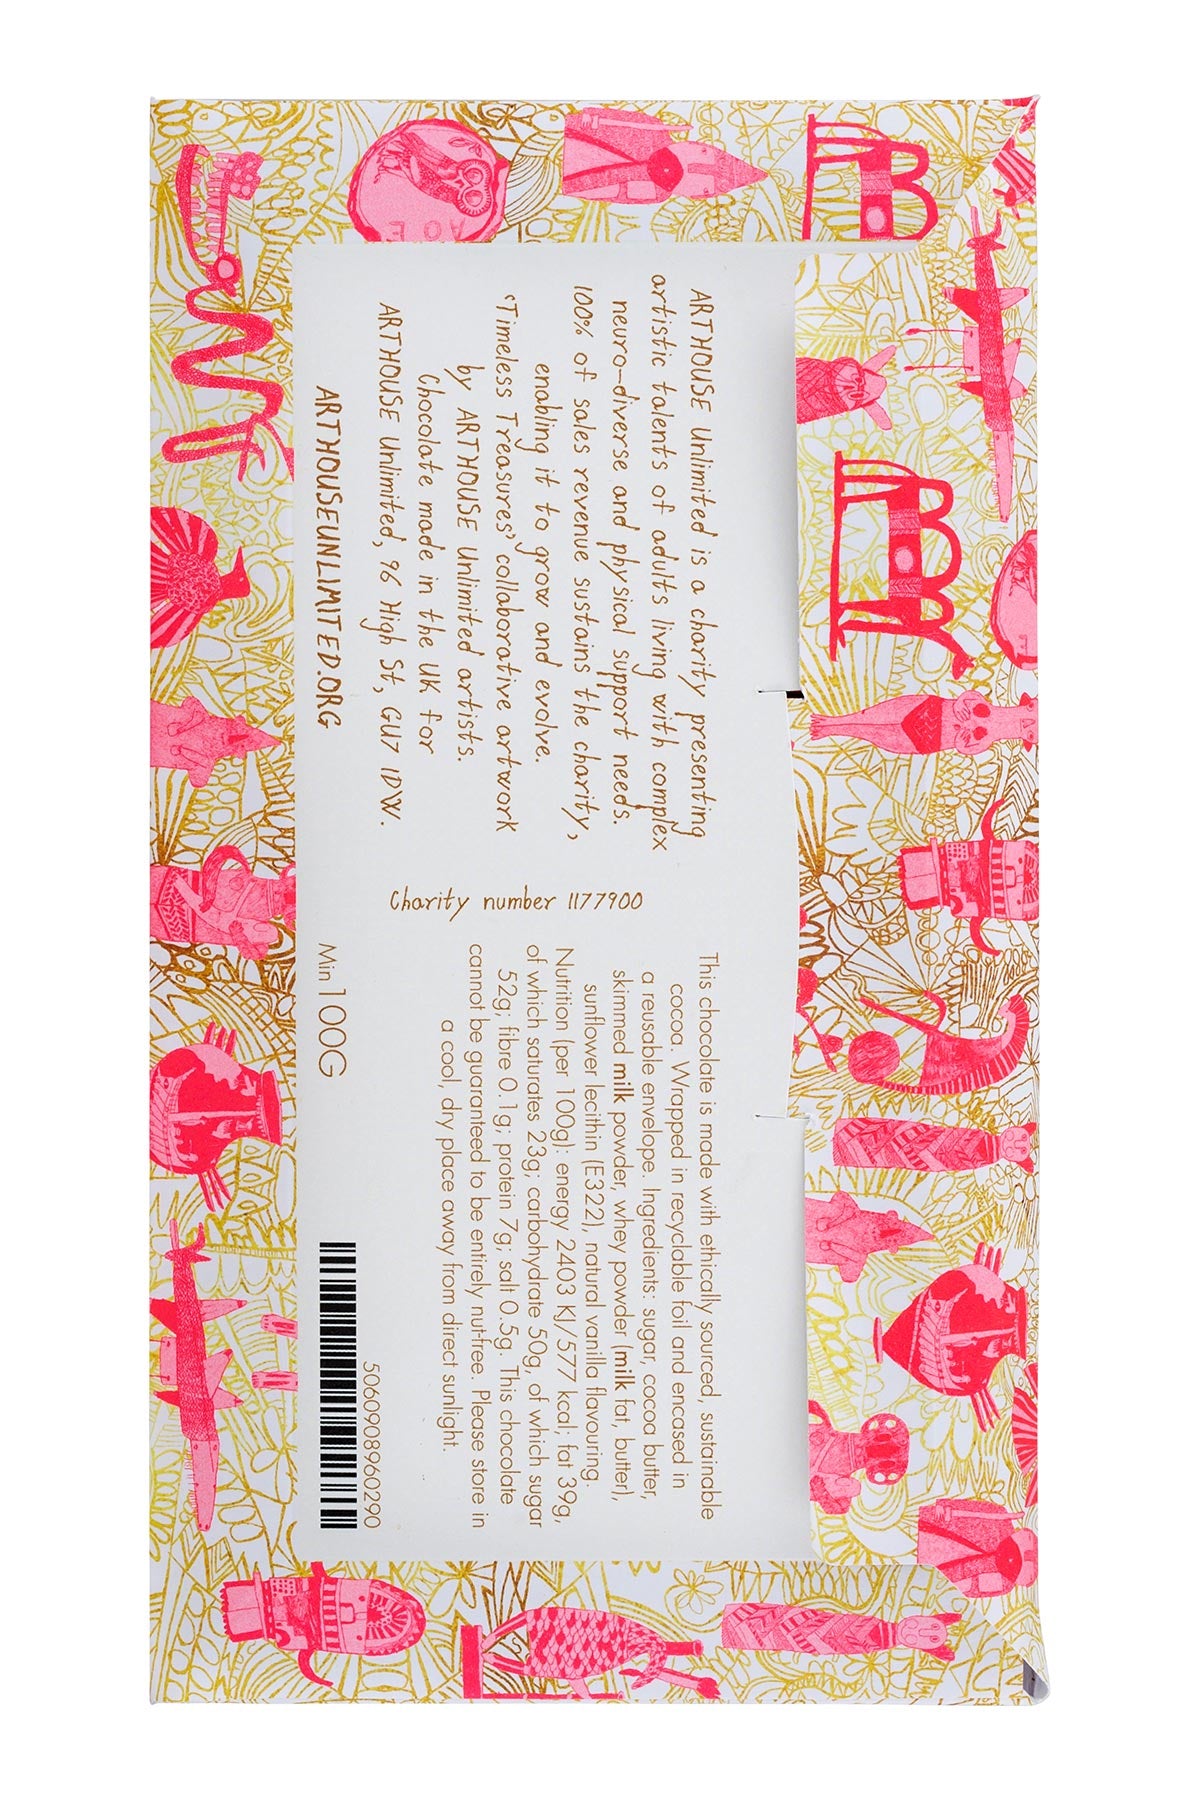 ARTHOUSE Unlimited is a charity presenting
artistic talents of adults living with complex
neuro-diverse and physical support needs.
100% of sales revenue sustains the charity,
enabling it to grow and evolve.
'Timeless Treasures' collaborative artwork
by ARTHOUSE Unlimited artists.
Chocolate made in the UK for
ARTHOUSE Unlimited, 96 High St, GU7 1DW.
ARTHOUSEUNLIMITED.ORG
Charity number 1177900
This chocolate is made with ethically sourced, sustainable
cocoa. Wrapped in recyclable foil and encased in
a reusable envelope. Ingredients: sugar, cocoa butter,
skimmed milk powder, whey powder (milk fat, butter),
sunflower lecithin (E322), natural vanilla flavouring.
Nutrition (per 100g): energy 2403 KJ/577 kcal; fat 39g,
of which saturates 23g; carbohydrate 50g, of which sugar
52g; fibre 0.1g; protein 7g; salt 0.5g. This chocolate
cannot be guaranteed to be entirely nut-free. Please store in
a cool, dry place away from direct sunlight.
Min 100G
5060908960290